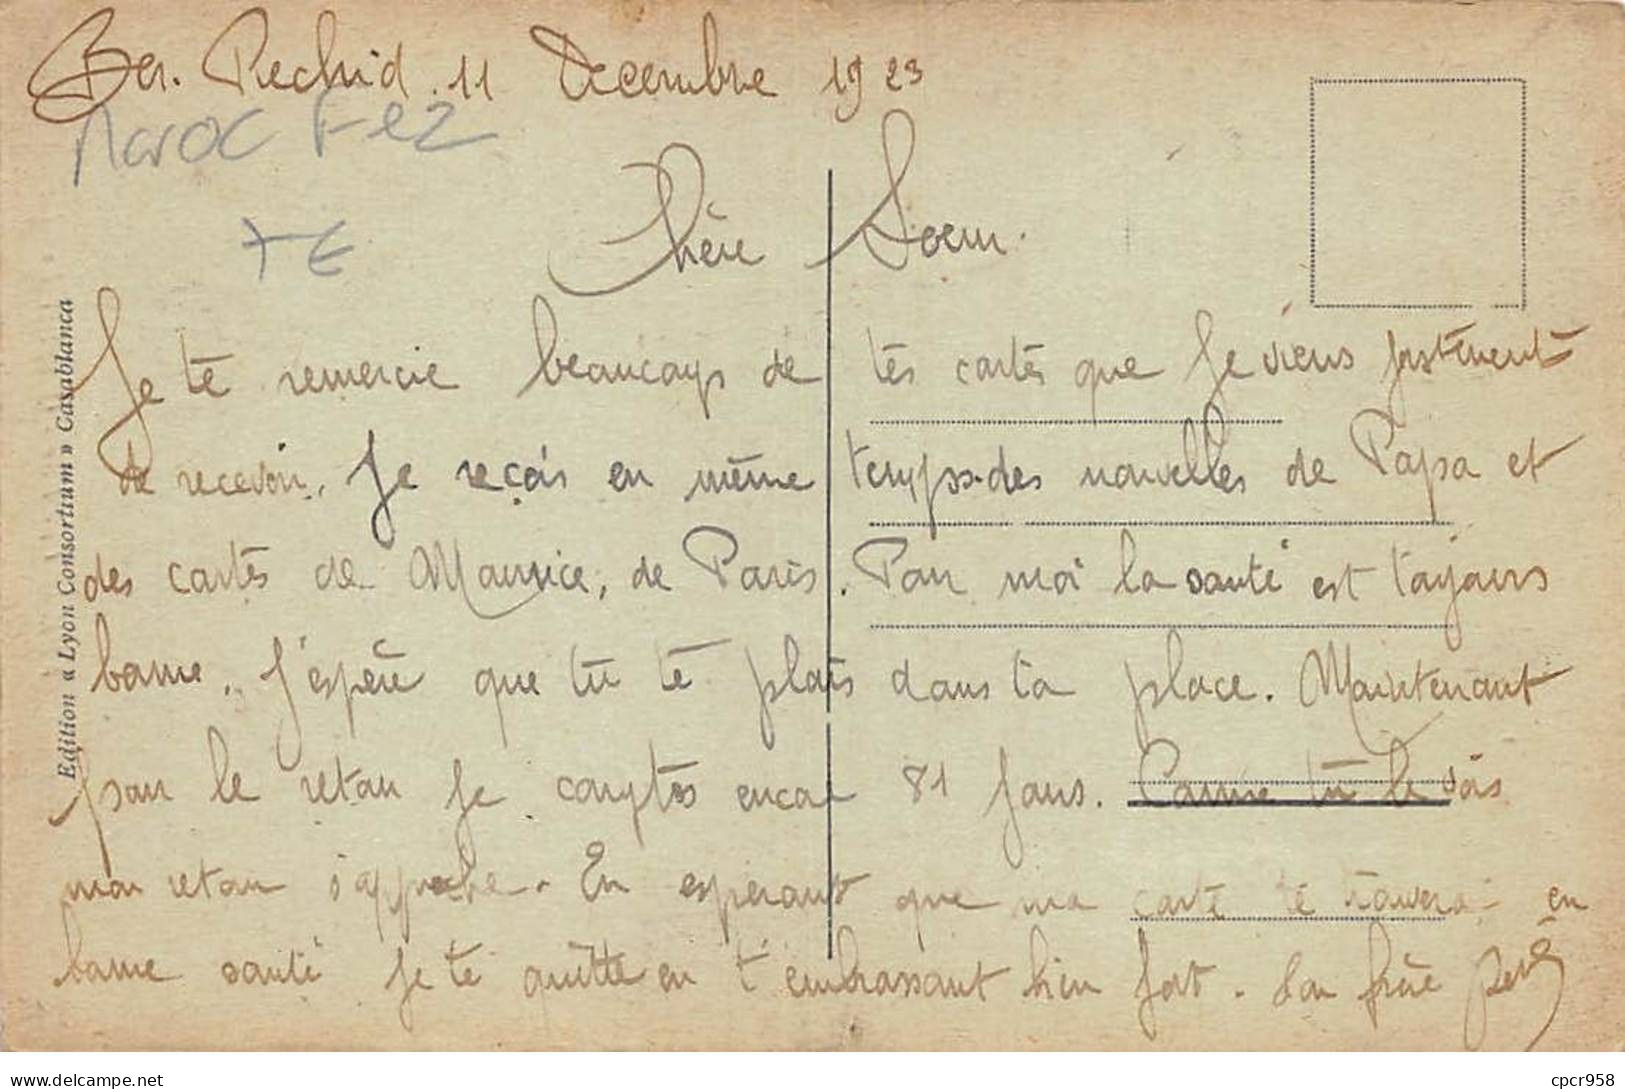 Ber. Rechid. 11 Decembre 1923
Maroc Fez
7€
Chère Soeur.
Je te remercie beaucoup de tes cartes que je viens justement
de recevoir. Je reçois en même temps des nouvelles de Papa et
des cartes de Maurice, de Paris. Pour moi la santé est toujours
bonne. J'espère que tu te plais dans ta place. Maintenant
pour le retour je comptes encor 81 jours. Comme tu le vois
mon retour s'approche. En esperant que ma carte te trouvera en
bonne santé je te quitte en t'embrassant bien fort. Ton frère
Edition « Lyon Consortium » Casablanca
delcampe.net cpcr958